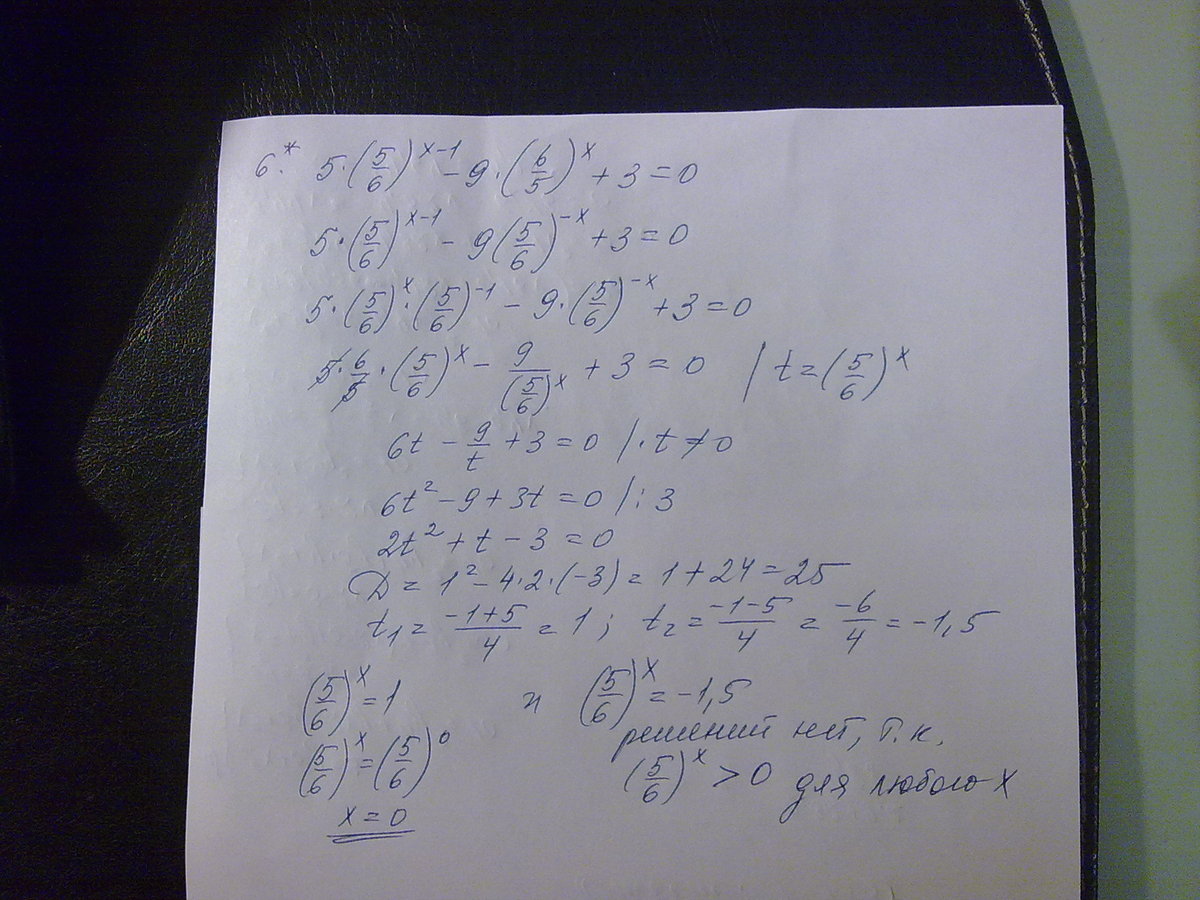 6.* 5·(5/6)^(x-1) - 9·(6/5)^x + 3 = 0
5·(5/6)^(x-1) - 9(5/6)^(-x) + 3 = 0
5·(5/6)^x·(5/6)^(-1) - 9·(5/6)^(-x) + 3 = 0
5·6/5·(5/6)^x - 9/(5/6)^x + 3 = 0 | t = (5/6)^x
6t - 9/t + 3 = 0 |·t ≠ 0
6t² - 9 + 3t = 0 |:3
2t² + t - 3 = 0
D = 1² - 4·2·(-3) = 1 + 24 = 25
t₁ = (-1+5)/4 = 1; t₂ = (-1-5)/4 = -6/4 = -1,5
(5/6)^x = 1 и (5/6)^x = -1,5
решений нет, т.к.
(5/6)^x = (5/6)^0 (5/6)^x > 0 для любого x
x = 0